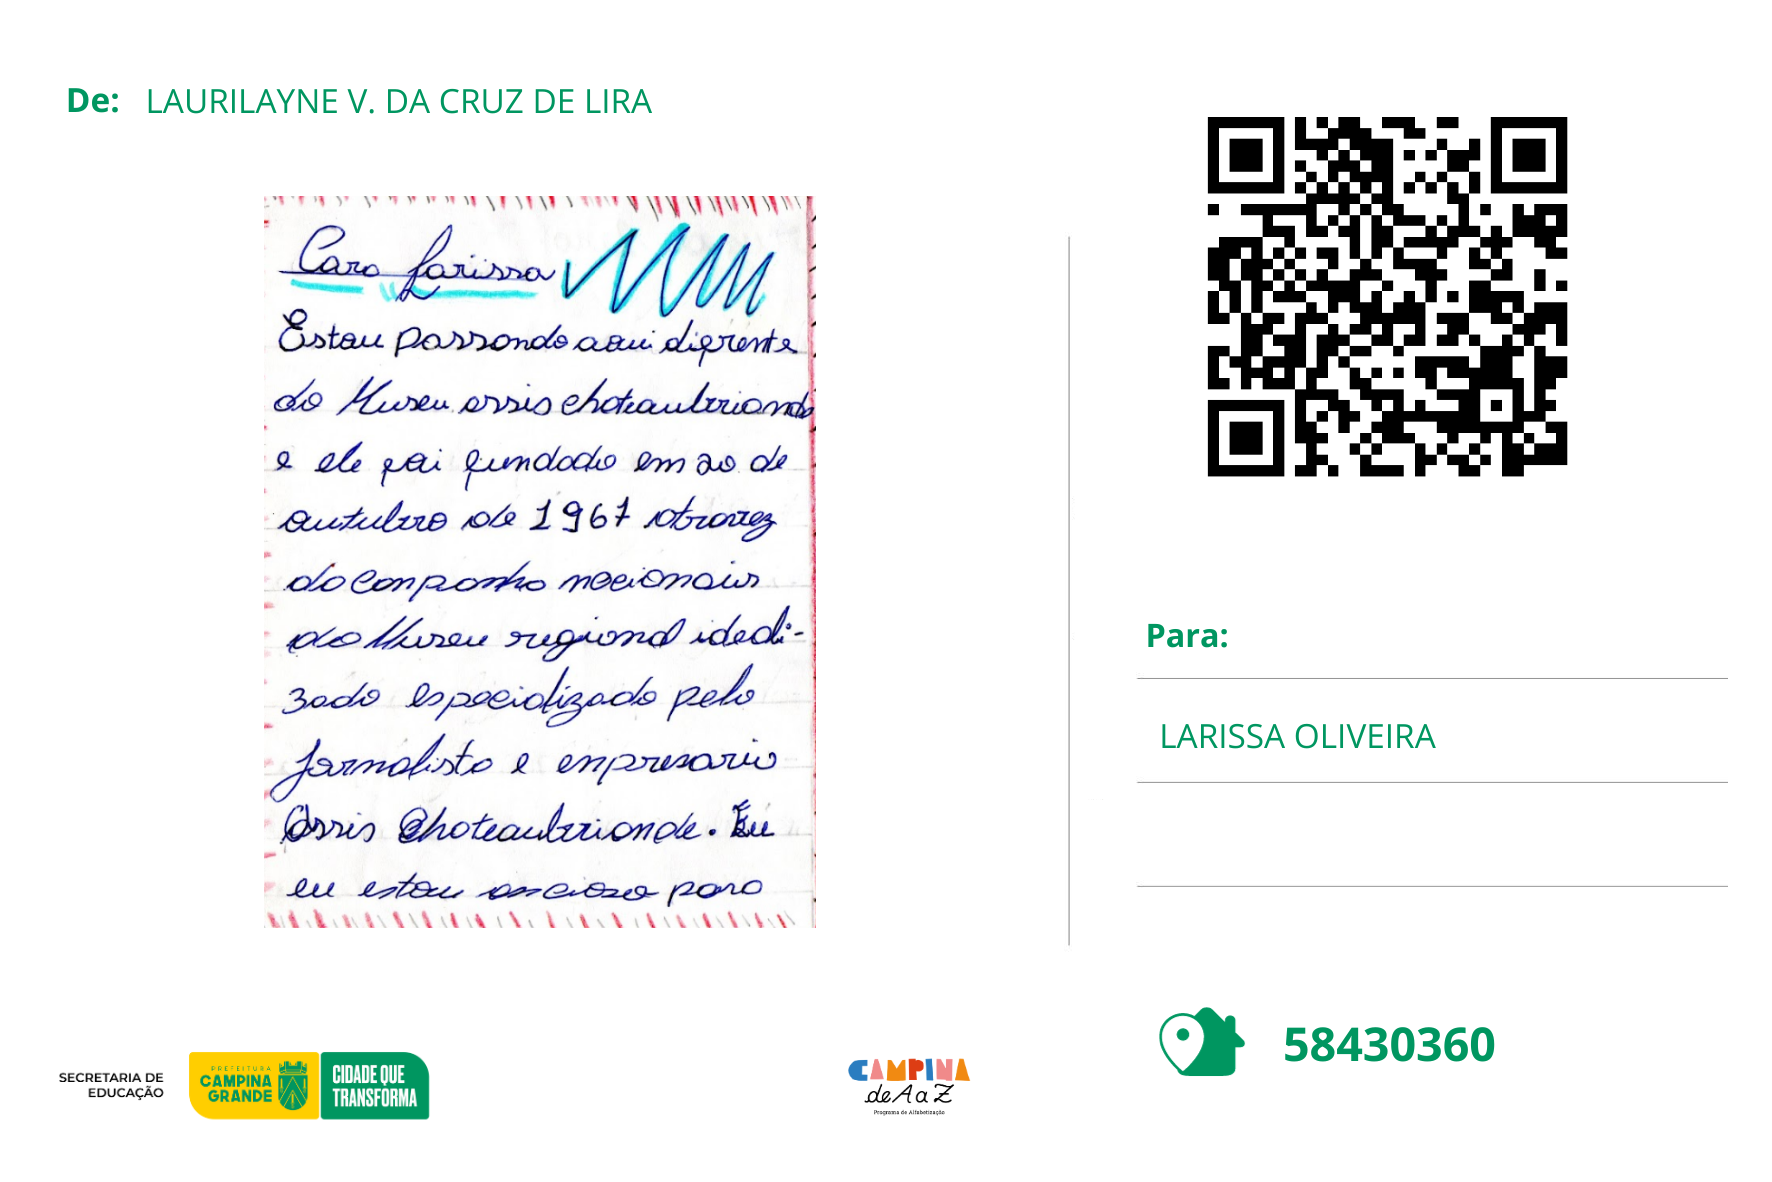 De: LAURILAYNE V. DA CRUZ DE LIRA
Cara Larissa
Estou passando aqui difrente
do Museu assis chateaubriando
e ele foi fundado em 20 de
outubro de 1967 atravez
da companha nacionais
do Museu regional ideali-
zado especializado pelo
jornalista e enpresario
Assis Chateaubriande. Eu
eu estou anciosa para
Para:
LARISSA OLIVEIRA
58430360
SECRETARIA DE
EDUCAÇÃO
PREFEITURA
CAMPINA
GRANDE
CIDADE QUE
TRANSFORMA
CAMPINA
de A a Z
Programa de Alfabetização